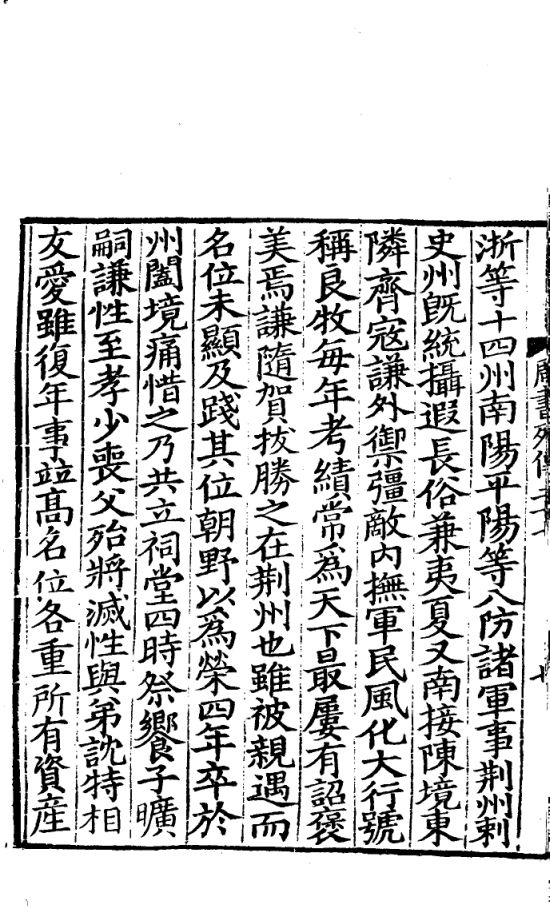 淅等十四州南陽平陽等八防諸軍事荆州刺
史州既統攝遐長俗兼夷夏又南接陳境東
隣齊寇謙外禦彊敵内撫軍民風化大行號
稱良牧每年考績常為天下最屢有詔褒
美焉謙隨賀拔勝之在荆州也雖被親遇而
名位未顯及踐其位朝野以為榮四年卒於
州闔境痛惜之乃共立祠堂四時祭饗子曠
嗣謙性至孝少喪父殆將滅性與弟說特相
友愛雖復年事竝髙名位各重所有資産